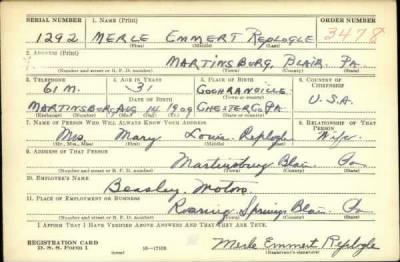 SERIAL NUMBER 1. NAME (Print) ORDER NUMBER
1292 MERLE EMMERT REPLOGLE 3478
(First) (Middle) (Last)
2. ADDRESS (Print)
MARTINSBURG, BLAIR, PA.
(Number and street or R. F. D. number) (Town) (County) (State)
3. TELEPHONE 4. AGE IN YEARS 5. PLACE OF BIRTH 6. COUNTRY OF CITIZENSHIP
61 M. 31 COCHRANVILLE
DATE OF BIRTH (Town or county) U.S.A.
MARTINSBURG AUG 14 1909 CHESTER CO PA.
(Exchange) (Number) (Mo.) (Day) (Yr.) (State or country)
7. NAME OF PERSON WHO WILL ALWAYS KNOW YOUR ADDRESS 8. RELATIONSHIP OF THAT PERSON
Mrs. Mary Louise Replogle Wife
(Mr., Mrs., Miss) (First) (Middle) (Last)
9. ADDRESS OF THAT PERSON
Martinsburg Blair Pa
(Number and street or R. F. D. number) (Town) (County) (State)
10. EMPLOYER'S NAME
Beasley Motors
11. PLACE OF EMPLOYMENT OR BUSINESS
Roaring Springs Blair Pa
(Number and street or R. F. D. number) (Town) (County) (State)
I AFFIRM THAT I HAVE VERIFIED ABOVE ANSWERS AND THAT THEY ARE TRUE.
REGISTRATION CARD
D. S. S. FORM 1 (over) 16—17105 Merle Emmert Replogle
(Registrant's signature)